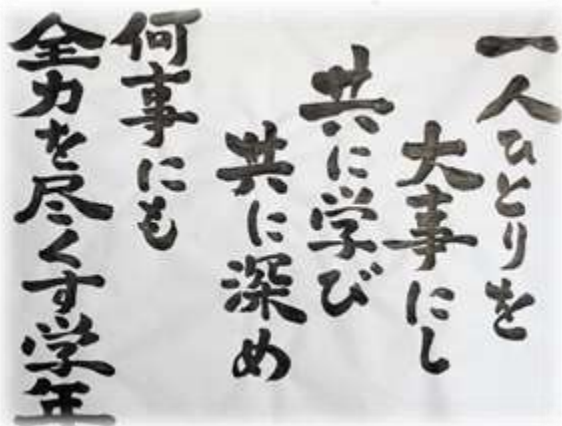 一人ひとりを
大事にし
共に学び
共に深め
何事にも
全力を尽くす学年